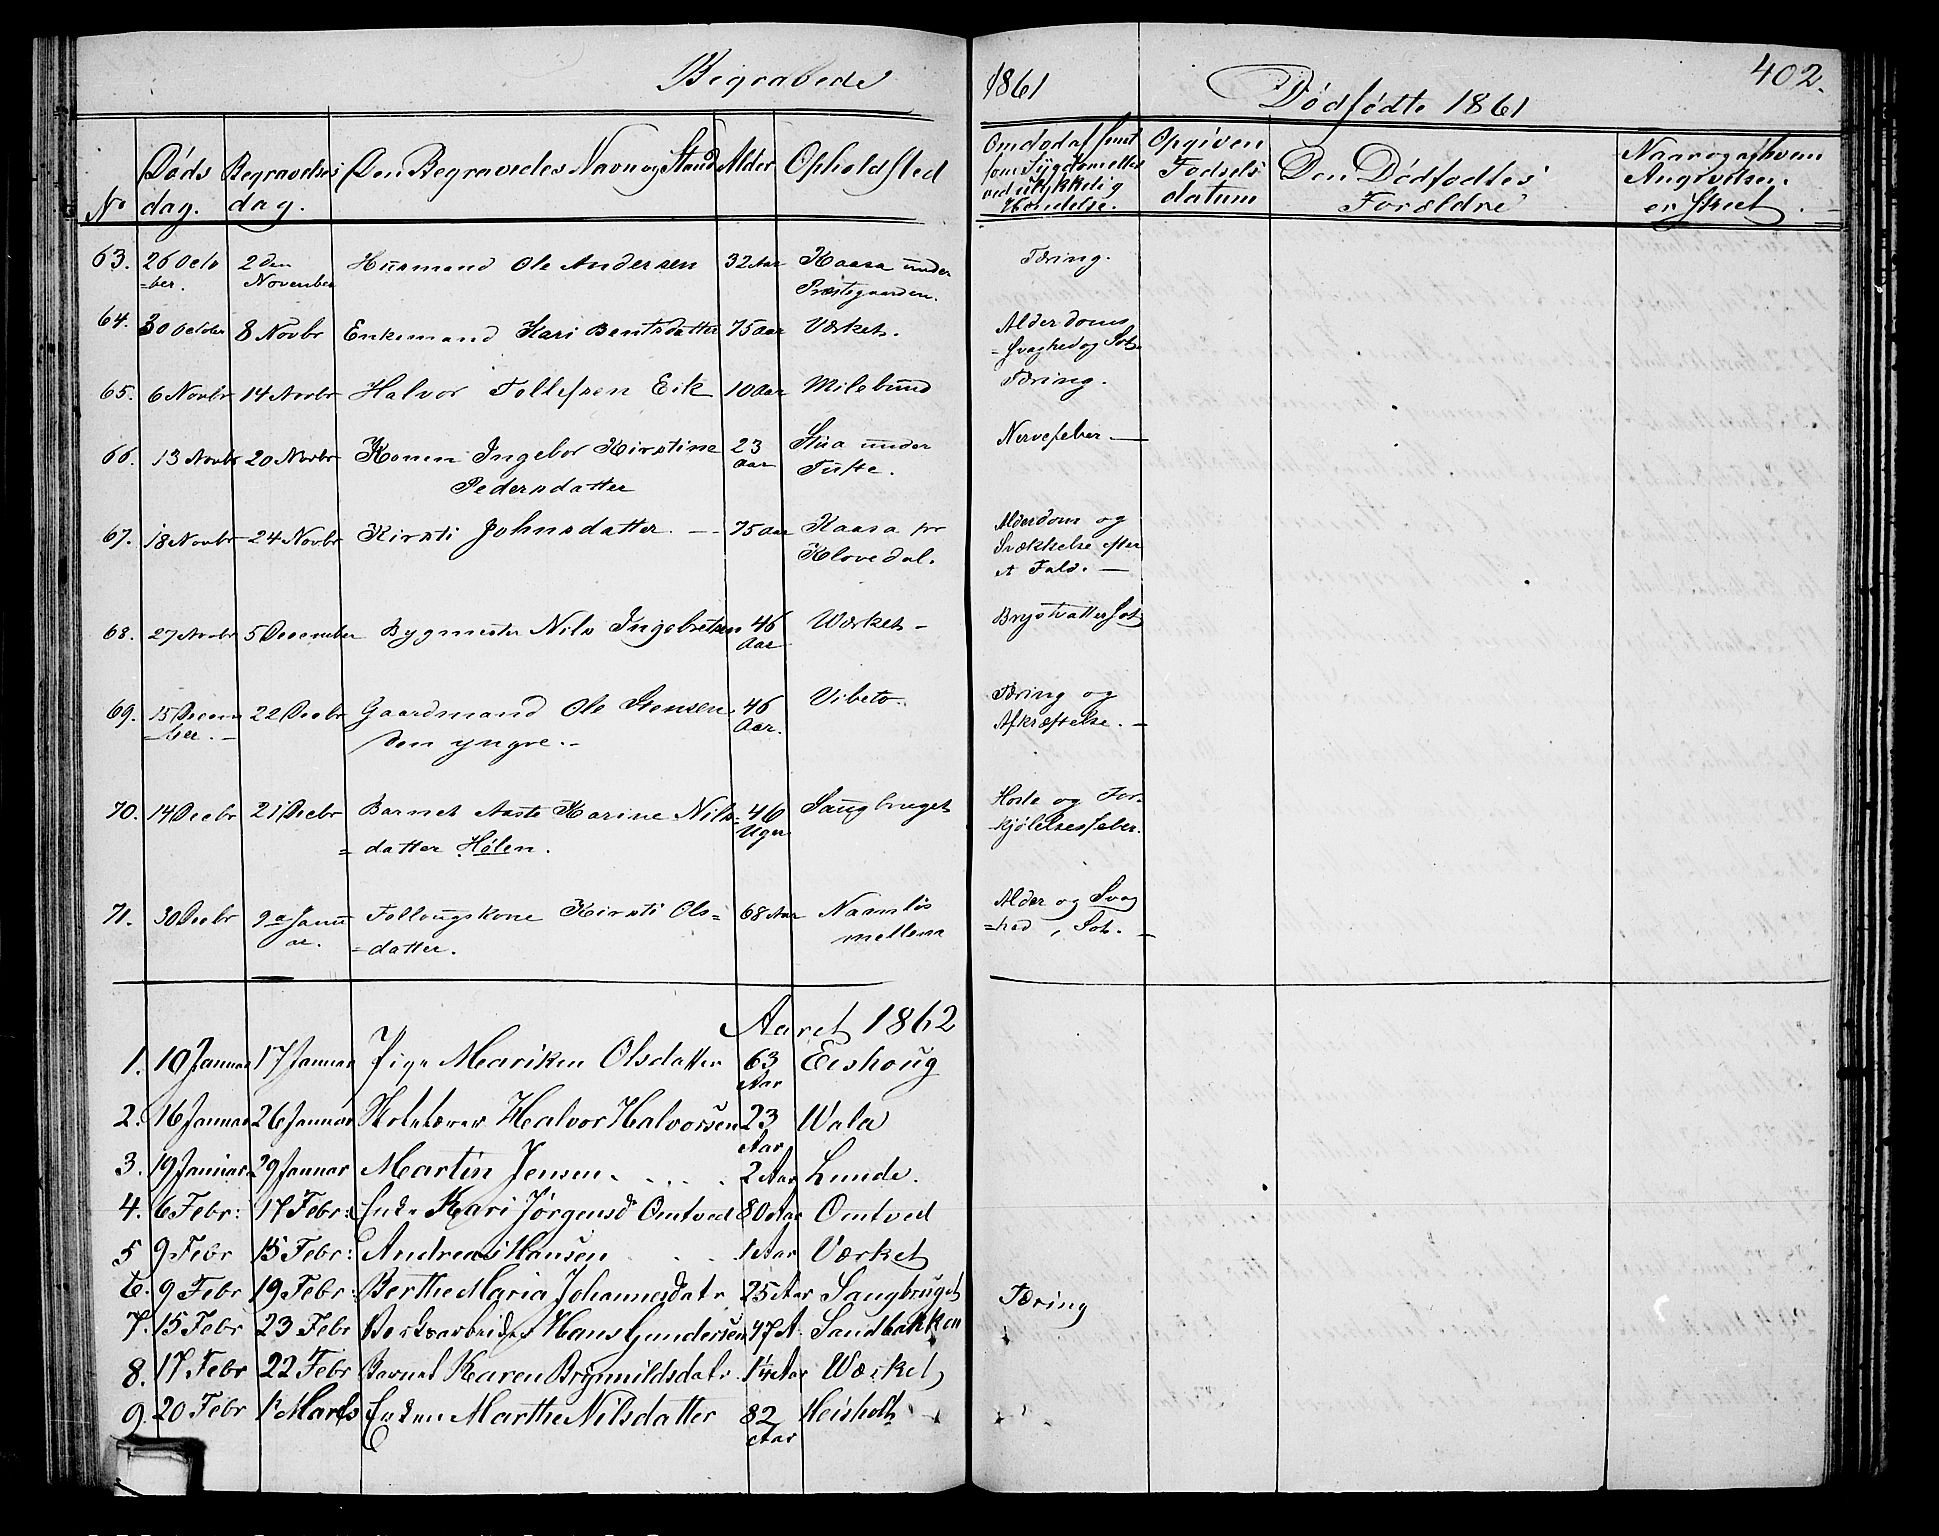 Begravede
1861
402.
Dødfødte 1861
No
Døds dag.
Begravelses dag.
Den Begravedes Navn og Stand
Alder
Opholdsted
Om død af smit
som Sygdom eller
ved ulykkelig
Hændelse.
Opgiven
Fødsels
datum
Den Dødfødtes
Forældre
Naar og af hvem
Angivelsen
er skeet.
63. 26 Octo 2den Husmand Ole Andersen 32 Aar Kaasa under Tæring.
=ber. November Præstegaarden.
64. 30 October 8 Novbr Enkemand Kari Bentsdatter 75 Aar Værket. Alderdoms
=svaghed og Sot.
65. 6 Novbr 14 Novbr Halvor Tollefsen Eik 10 Aar Milebund Tæring.
66. 13 Novbr 20 Novbr Konen Ingebor Kirstine 23 Stua under Nervefeber. —
Pedersdatter Aar Tufte.
67. 18 Novbr 24 Novbr Kirsti Johnsdatter. — 75 Aar Kaasa pr Alderdom og
Klovedal. Svækkelse efter
et Fald. —
68. 27 Novbr 5 December Bygmester Nils Ingebretsen 46 Værket — Brystvattersot
Aar
69. 15 Decem 22 Decbr Gaardmand Ole Stensen 46 Vibeto. Tæring og
=ber. — den yngre. — Aar. Afkræftelse. —
70. 14 Decbr 21 Decbr Barnet Aaste Karine Nils= 46 Saugbruget Hoste og For=
=datter Hølen. Uger kjølelsesfeber.
71. 30 Decbr 9a Janu Follougskone Kirsti Ols= 68 Aar Naanlös Alder og Svag
ar. =datter. mellem =hed, Sot. —
Aaret 1862
1. 10 Januar 17 Januar Pige Mariken Olsdatter 63 Eishoug
Aar
2. 16 Januar 26 Januar Halvor Halvorsen 23 Wala
Aar
3. 19 Januar 29 Januar Martin Jensen. 2 Aar Lunde.
4. 6 Febr: 17 Febr: Enke Kari Jørgensd Omtved 80 Aar Omtved
5 9 Febr 15 Febr: Andreas Hansen 1 Aar Værket
6. 9 Febr 19 Febr: Berthe Maria Johannesdatr 25 Aar Saugbruget Tæring
7. 15 Febr 23 Febr Verksarbeider Hans Gundersen 47 A. Sandbakken
8. 17 Febr 22 Febr Barnet Karen Brynnildsdatr 1¼ Aar Wærket
9. 20 Febr 1 Marts Enken Marthe Nilsdatter 82 Heisholt
Aar